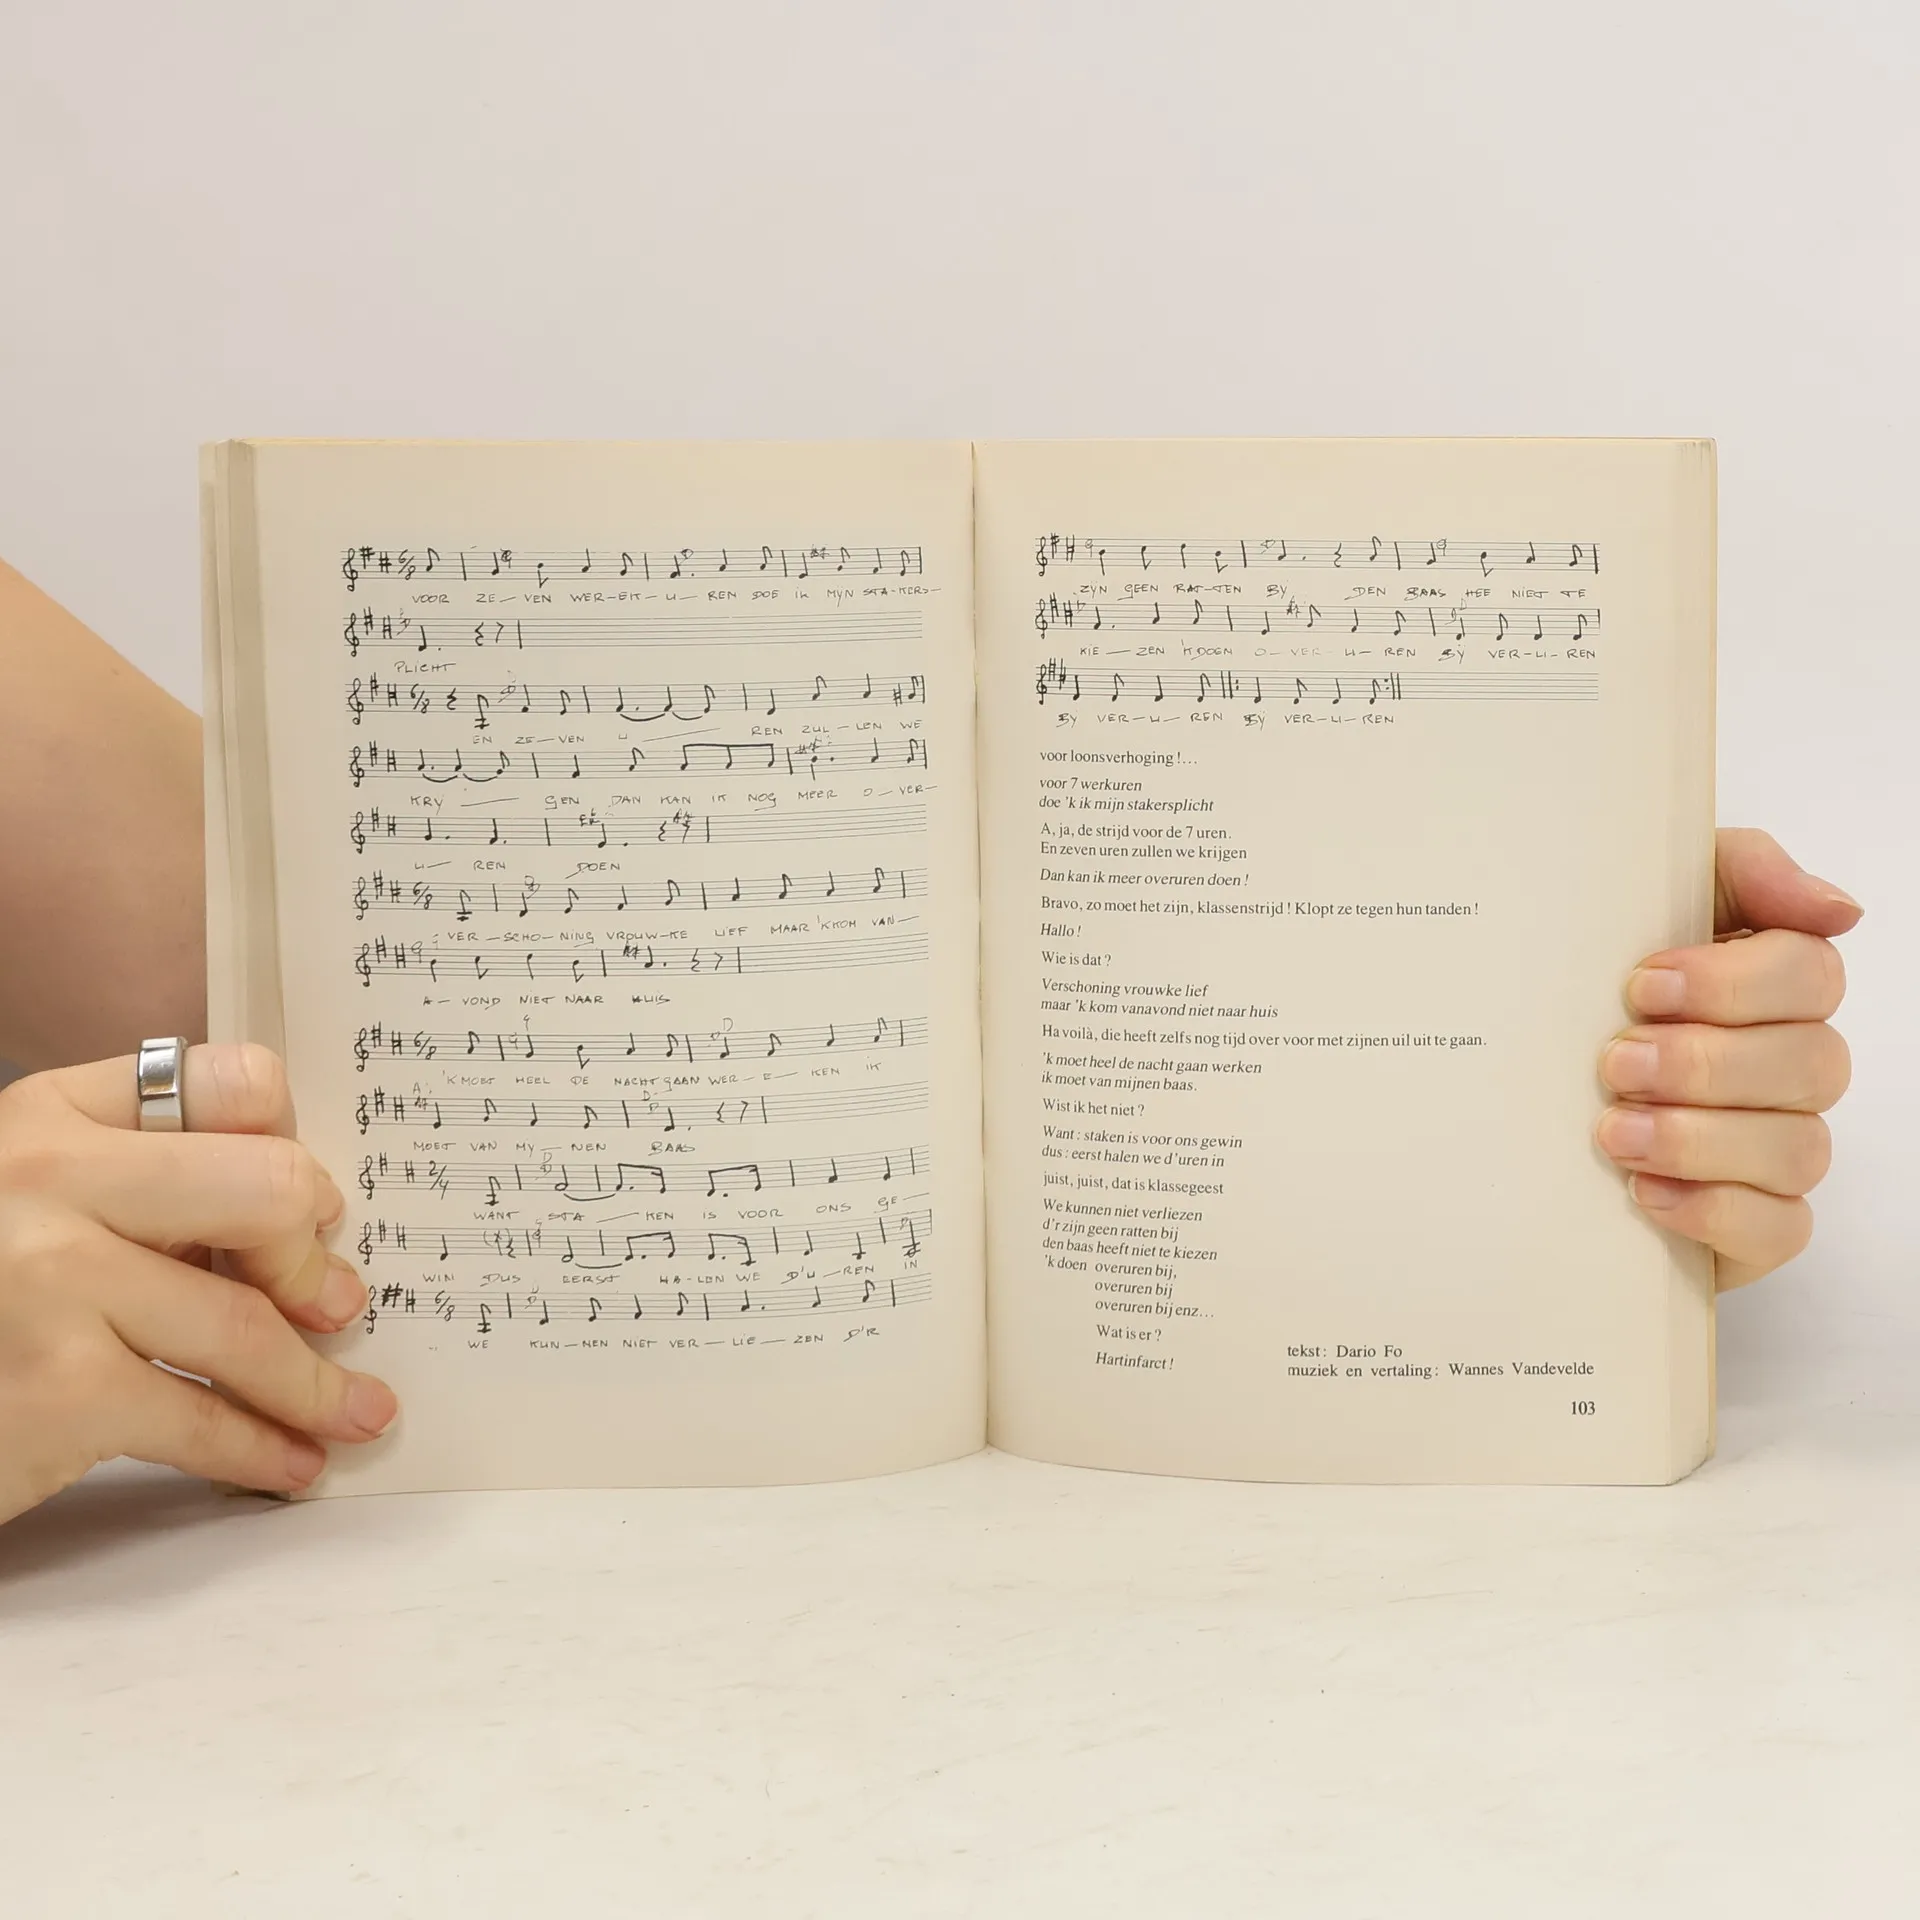 VOOR ZE — VEN WER-EK-U — REN DOE ik MYN STA-KERS-
PLICHT
EN ZE — VEN U — REN ZUL — LEN WE
KRY — GEN DAN KAN IK NOG MEER O — VER-
U — REN DOEN
VER — SCHO — NING VROUW-KE LIEF MAAR 'KKOM VAN —
A — VOND NIET NAAR HUIS
'K MOET HEEL DE NACHT GAAN WER — E — KEN IK
MOET VAN MY — NEN BAAS
WANT STA — KEN IS VOOR ONS GE —
WIN DUS EERST HA-LEN WE D'U — REN IN
WE KUN — NEN NIET VER — LIE — ZEN D'R
ZYN GEEN RAT-TEN BY DEN BAAS HEE NIET TE
KIE — ZEN 'KDOEN O — VER — U — REN BY VER-U — REN
BY VER-U — REN BY VER-U — REN
voor loonsverhoging !...
voor 7 werkuren
doe 'k ik mijn stakersplicht
A, ja, de strijd voor de 7 uren.
En zeven uren zullen we krijgen
Dan kan ik meer overuren doen !
Bravo, zo moet het zijn, klassenstrijd ! Klopt ze tegen hun tanden !
Hallo !
Wie is dat ?
Verschoning vrouwke lief
maar 'k kom vanavond niet naar huis
Ha voilà, die heeft zelfs nog tijd over voor met zijnen uil uit te gaan.
'k moet heel de nacht gaan werken
ik moet van mijnen baas.
Wist ik het niet ?
Want : staken is voor ons gewin
dus : eerst halen we d'uren in
juist, juist, dat is klassegeest
We kunnen niet verliezen
d'r zijn geen ratten bij
den baas heeft niet te kiezen
'k doen overuren bij,
overuren bij
overuren bij enz...
Wat is er ?
Hartinfarct !
tekst : Dario Fo
muziek en vertaling : Wannes Vandevelde
103